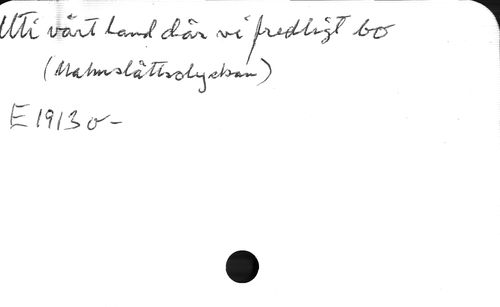 Uti vårt land där vi fredligt bo
(Malmslättsolyckan)
E 1913 o-